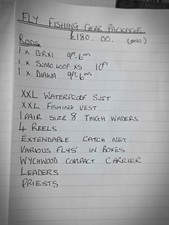 FLY FISHING GEAR PACKAGE
£180.00. (ono)
RODS
1 x 9ft 6
1 x 10ft
1 x DIAWA 9ft 6
XXL WATERPROOF SUIT
XXL FISHING VEST
1 PAIR SIZE 8 THIGH WADERS
4 REELS
EXTENDABLE CATCH NET
VARIOUS FLYS' IN BOXES
WYCHWOOD COMPACT CARRIER
LEADERS
PRIESTS